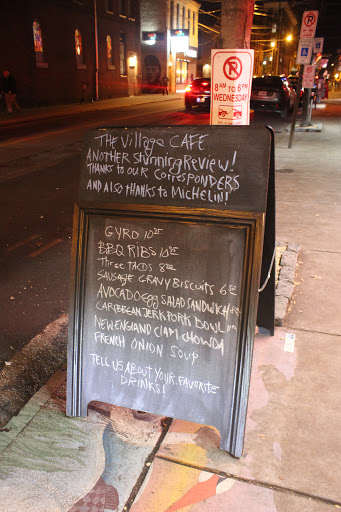 8 AM TO 6 PM
WEDNESDAY
THE VILLAGE CAFE
ANOTHER STUNNING REVIEW!
THANKS TO OUR CORRESPONDERS
AND ALSO THANKS TO MICHELIN!
GYRO 10.25
BBQ RIBS 10.25
THREE TACOS 8
SAUSAGE GRAVY BISCUITS 6
AVOCADO EGG SALAD SANDWICH
CARIBBEAN JERK PORK BOWL
NEW ENGLAND CLAM CHOWDA
FRENCH ONION SOUP
TELL US ABOUT YOUR FAVORITE
DRINKS!